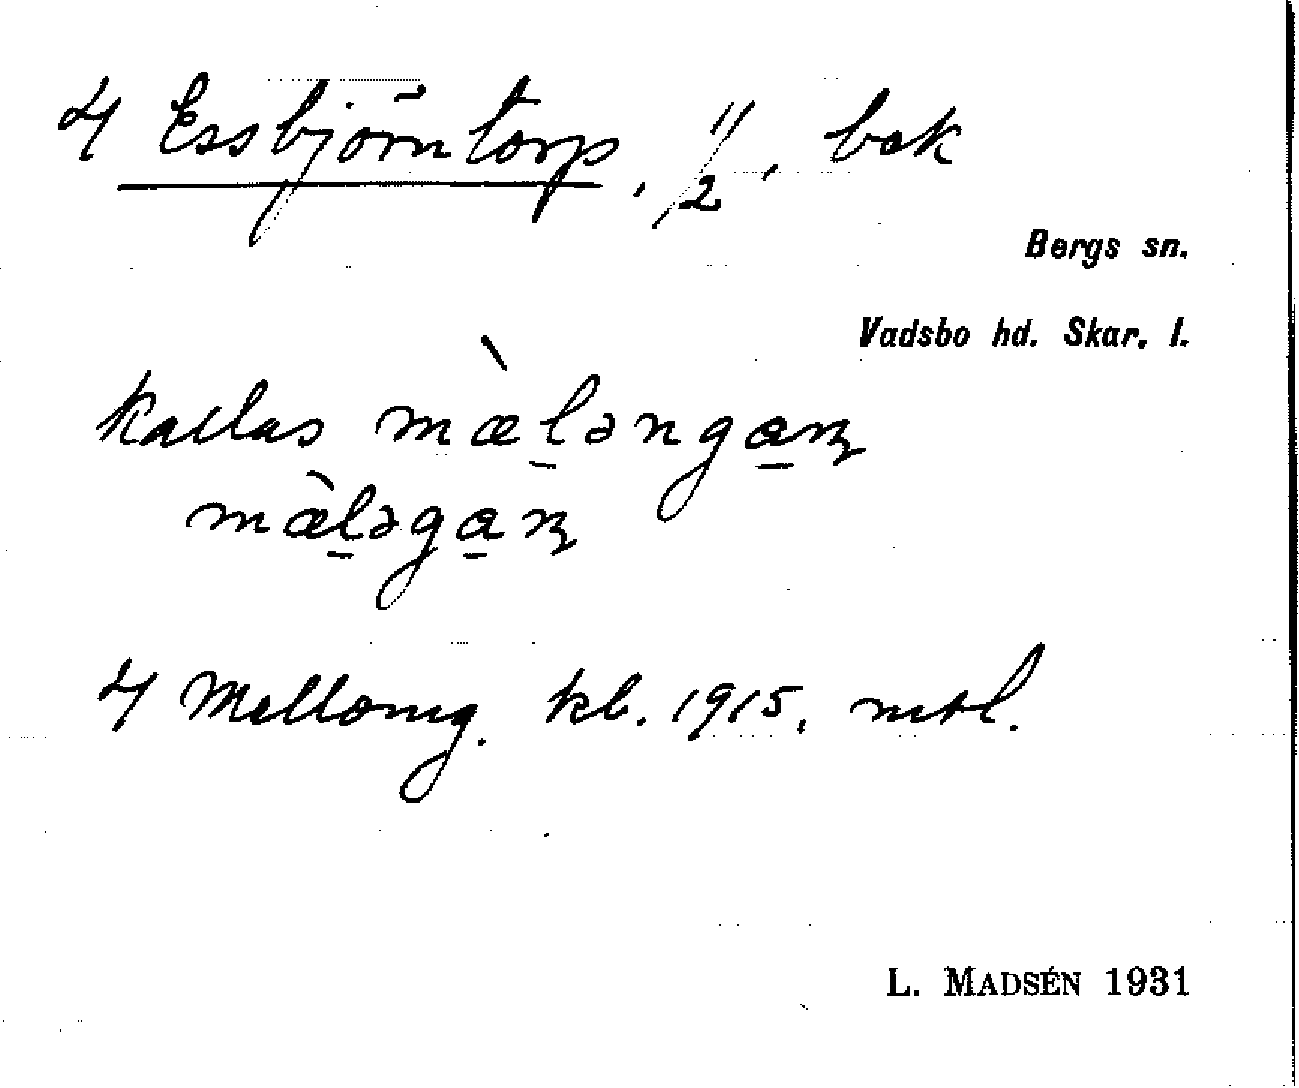 4 Essbjörntorp, 1/2", bek
Bergs sn.
Vadsbo hd. Skar. l.
kallas mæ̀l̠ənga̠ɳ
mæ̀l̠əga̠ɳ
4 Mellomg. kb. 1915, mtl.
L. MADSÉN 1931